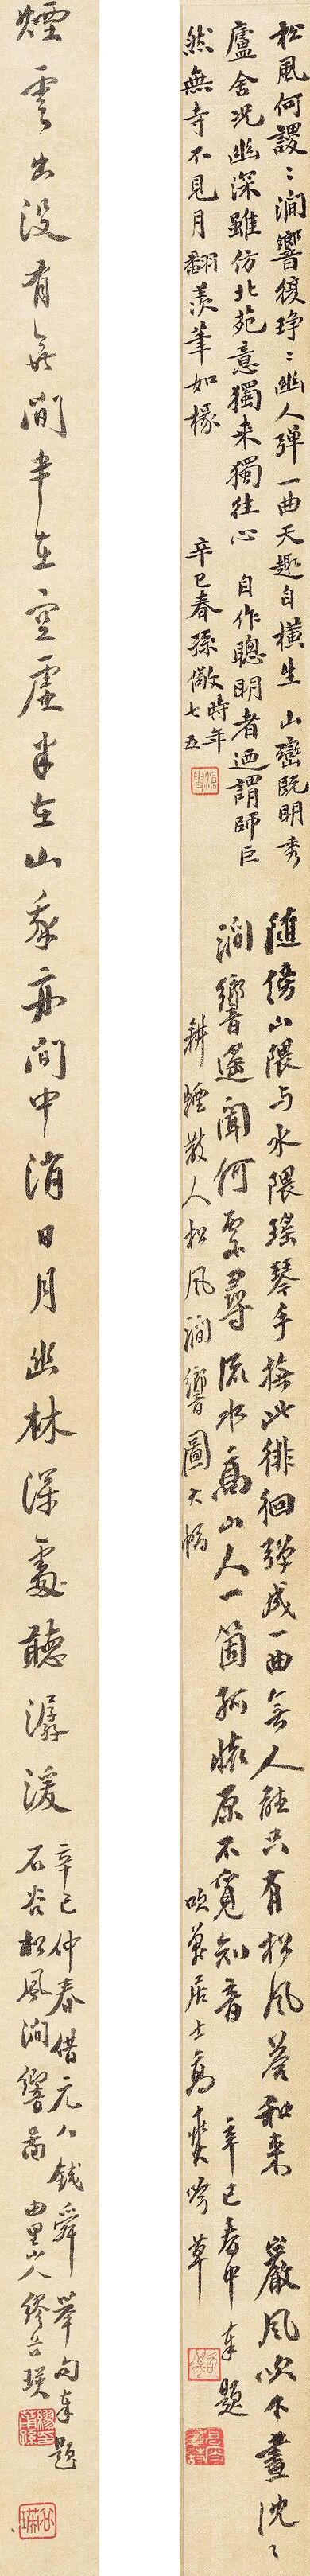 松風何謖〻澗響復琤〻幽人彈一曲天趣自橫生 山巒既明秀
廬舍況幽深雖仿北苑意獨来獨往心 自作聰明者迺謂師巨
然無寺不見月翻羨筆如椽 辛巳春孫儆時年七五
随傍山隈与水隈瑤琴手撫此徘徊彈成一曲無人聽只有松風荅和来 嚴風吹不晝沈〻
澗響遙聞何處尋流水高山人一箇孤懷原不覓知音 辛巳春中奉題
耕煙散人松風澗響圖大幅 居士高 吟草
煙雲出没有無間半在空虛半在山我亦閒中消日月幽林深處聽潺湲
辛巳仲春借元人錢舜舉句奉題
石谷松風澗響啚 由里山人繆谷瑛